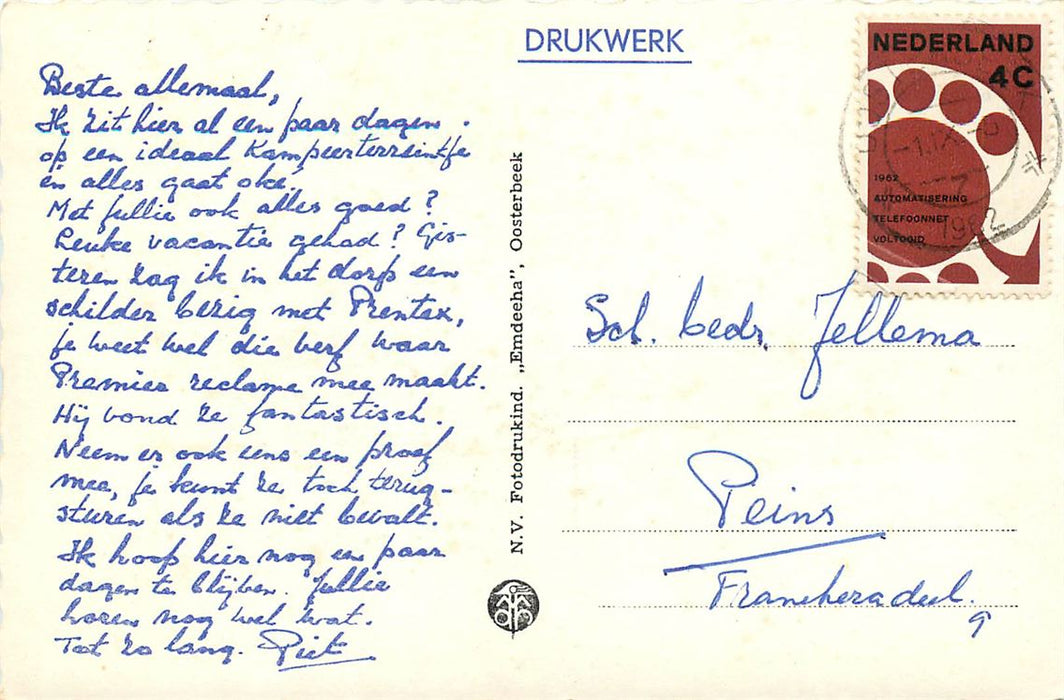 Beste allemaal,
Ik zit hier al een paar dagen
op een ideaal kampeerterreintje
en alles gaat oké.
Met jullie ook alles goed?
Leuke vacantie gehad? Gis-
teren zag ik in het dorp een
schilder bezig met Prentex,
je weet wel die verf waar
Premier reclame mee maakt.
Hij vond ze fantastisch.
Neem er ook eens een proef
mee, je kunt ze toch terug-
sturen als ze niet bevalt.
Ik hoop hier nog een paar
dagen te blijven. Jullie
horen nog wel wat.
Tot zo lang. Piet
DRUKWERK
N.V. Fotodrukind. „Emdeeha”, Oosterbeek
NEDERLAND
4C
1962
AUTOMATISERING
TELEFOONNET
VOLTOOID
1962
Sch. bedr. Jellema
Peins
Franekeradeel.
9